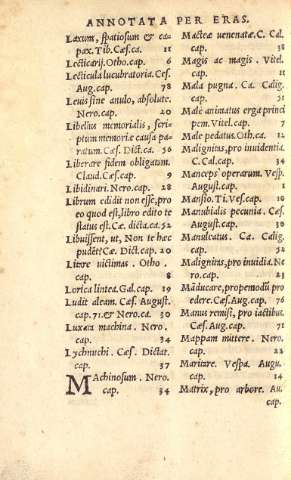 ANNOTATA PER ERAS.
Laxum, spatiosum & ca-
pax. Tib. Cæs. ca. 11
Lecticarij. Otho. cap. 6
Lecticula lucubratoria. Cæs.
Aug. cap. 78
Leuis sine anulo, absolute.
Nero. cap. 20
Libellus memorialis, scri-
ptum memoriæ causa pa-
ratum. Cæs. Dict. ca. 56
Liberare fidem obligatum.
Claud. Cæs. cap. 9
Libidinari. Nero. cap. 28
Librum edidit non esse, pro
eo quod est, libro edito te
status est. Cæ. dicta. ca. 52
Libuissent, ut, Non te hæc
pudet? Cæ. Dict. cap. 20
Litare victimas. Otho.
cap. 8
Lorica lintea. Gal. cap. 19
Ludit aleam. Cæs. August.
cap. 71. & Nero ca. 30
Luxata machina. Nero.
cap. 34
Lychnuchi. Cæs. Dictat.
cap. 37
MAchinosum. Nero.
cap. 34
Macteæ venenatæ. C. Cal.
cap. 38
Magis ac magis. Vitel.
cap. 11
Mala pugna. Ca. Calig.
cap. 51
Male animatus erga princi
pem. Vitel. cap. 7
Male pedatus. Oth. ca. 12
Malignius, pro inuidentia.
C. Cal. cap. 34
Manceps operarum. Vesp.
August. cap. 1
Mansio. Ti. Ves. cap. 10
Manubialis pecunia. Cæs.
August. cap. 30
Manuleatus. Ca. Calig.
cap. 52
Malignitas, pro inuidia. Ne
ro. cap. 23
Māducare, pro pemodū pro
edere. Cæs. Aug. cap. 76
Manus remisi, pro iactibus
Cæs. Aug. cap. 71
Mappam mittere. Nero.
cap. 22
Maritare. Vespa. Augu.
cap. 14
Matrix, pro arbore. Au
cap.